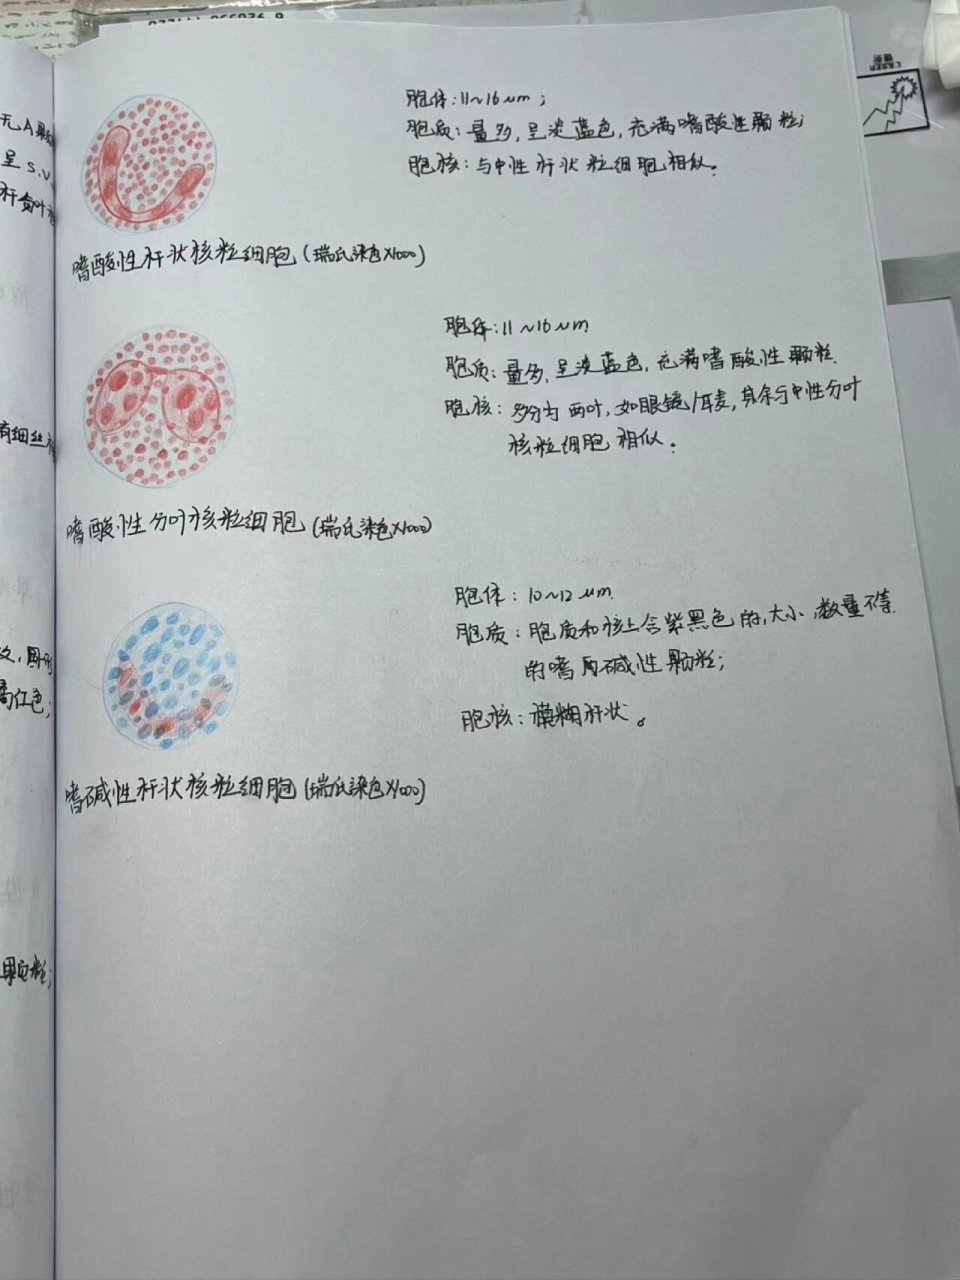 胞体：11~16μm；
胞质：量多，呈淡蓝色，充满嗜酸性颗粒；
胞核：与中性杆状粒细胞相似。
嗜酸性杆状核粒细胞（瑞氏染色×1000）
胞体：11~16μm
胞质：量多，呈淡蓝色，充满嗜酸性颗粒.
胞核：多分为两叶，如眼镜/耳麦，其余与中性分叶
核粒细胞相似。
嗜酸性分叶核粒细胞（瑞氏染色×1000）
胞体：10~12μm.
胞质：胞质和核上含紫黑色的，大小、数量不等
的嗜碱性颗粒；
胞核：模糊杆状。
嗜碱性杆状核粒细胞（瑞氏染色×1000）
有细丝
橘红色；
颗粒；
LASER